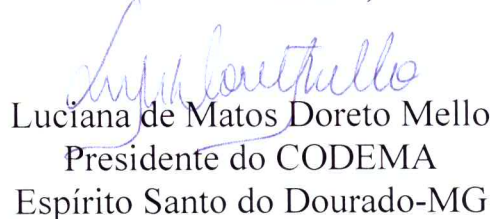 Luciana de Matos Doreto Mello
Presidente do CODEMA
Espírito Santo do Dourado-MG